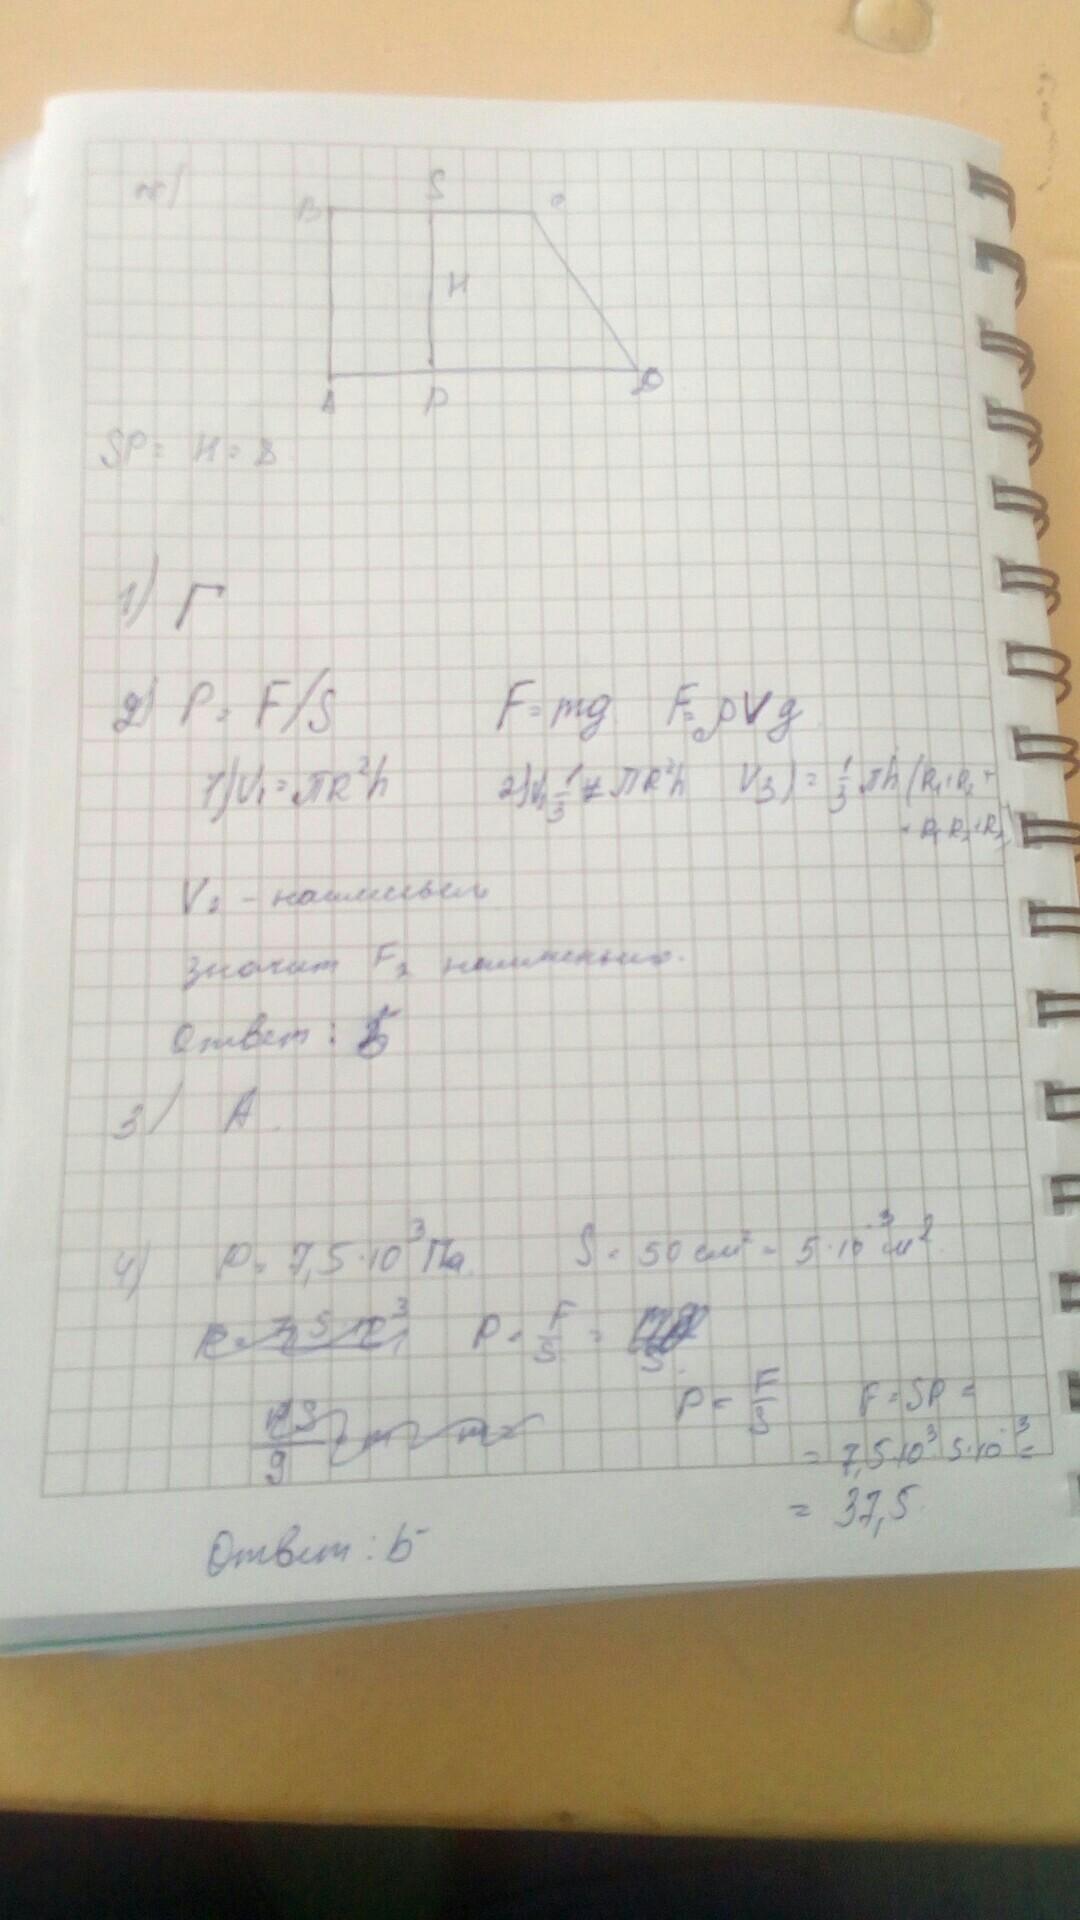 S
B
H
A P D
SP = H = 8
1) Г
2) P = F/S F = mg F = ρVg
1) V₁ = πR²h 2) V 1/3 πR²h V₃) = 1/3 πh (R₁ + R₂ +
+ R₁R₂ + R₂)
V₂ - наименьш
значит F₂ наименьшее.
Ответ: Б
3) A.
4) P = 7,5·10³ Па S = 50 см² = 5·10⁻³ м².
P = F/S =
P = F/S F = SP =
= 7,5·10³·5·10⁻³ =
= 37,5.
Ответ: Б